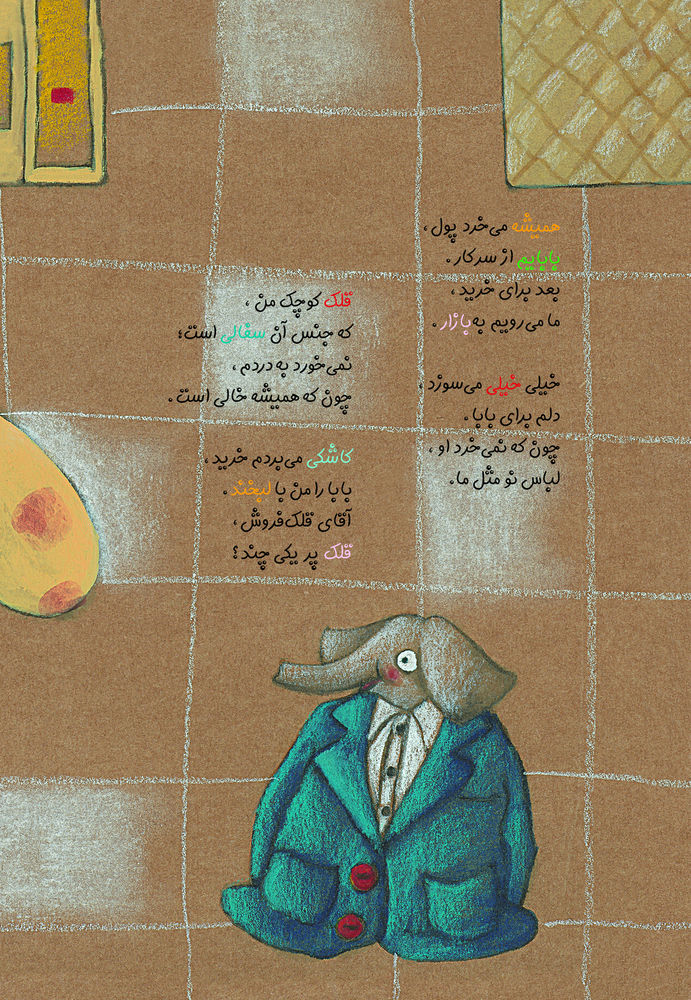 همیشه می‌خرد پول،
بابایم از سر کار.
بعد برای خرید،
ما می‌رویم به بازار.
خیلی خیلی می‌سوزد،
دلم برای بابا.
چون که نمی‌خرد او،
لباس نو مثل ما.
قلک کوچک من،
که جنس آن سفالی است؛
نمی‌خورد به دردم،
چون که همیشه خالی است.
کاشکی می‌بردم خرید،
بابا را من با لبخند.
آقای قلک‌فروش،
قلک پر یکی چند؟